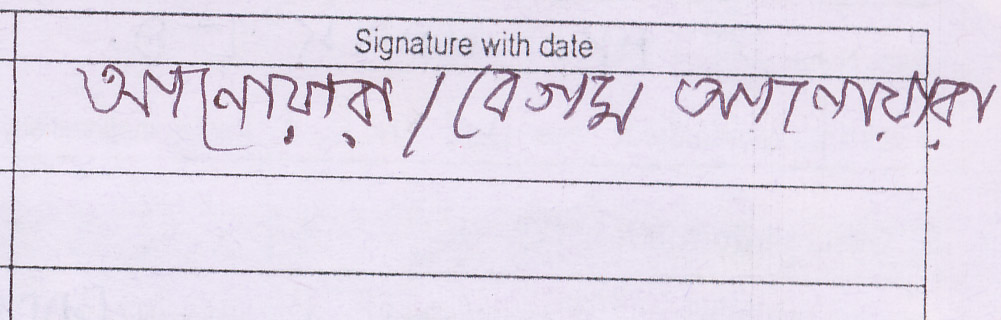 Signature with date
আনোয়ারা / বেগম আনোয়ারা